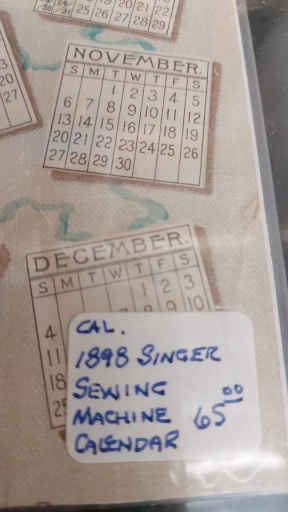 20 21 22
25 26 27 28 29
3
20
27
NOVEMBER.
S M T W T F S
1 2 3 4 5
6 7 8 9 10 11 12
13 14 15 16 17 18 19
20 21 22 23 24 25 26
27 28 29 30
DECEMBER.
S M T W T F S
1 2 3
4 8 9 10
11
18
25
CAL.
1898 SINGER
SEWING
MACHINE 65 00
CALENDAR